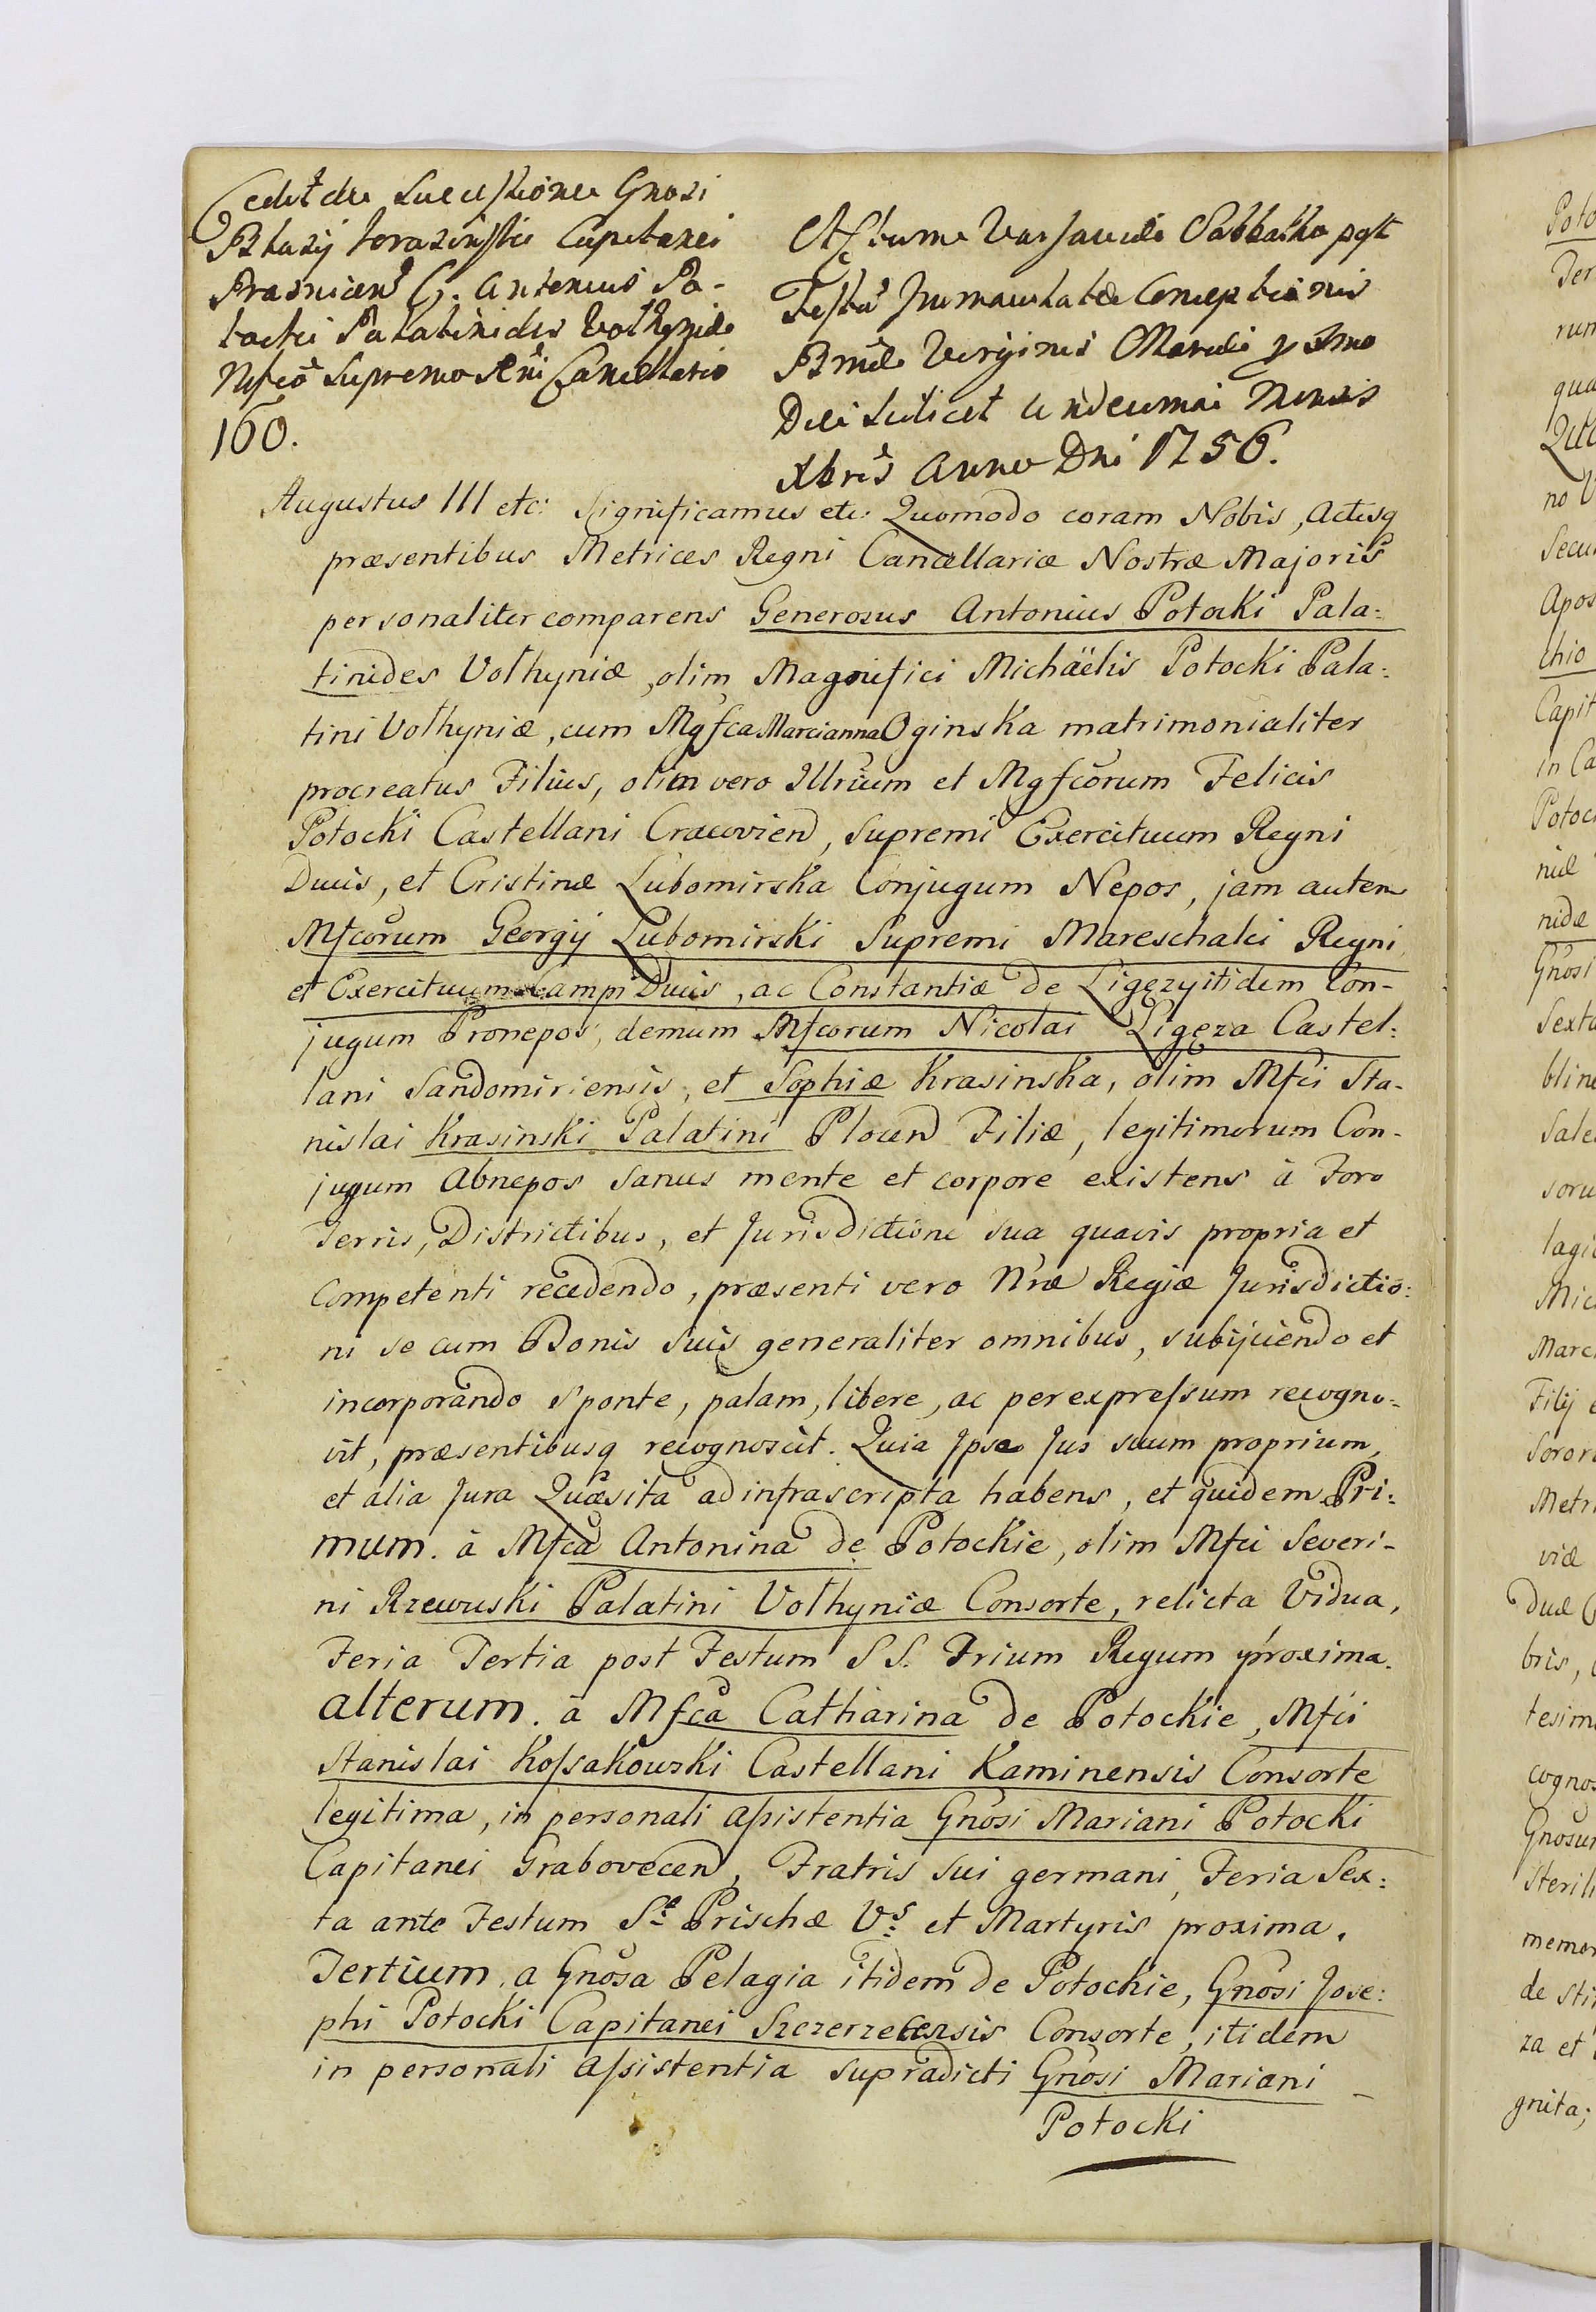 Cedit de Successione Gnosi
Blasij Krasinski Capitanei
Prasnicen G. Antonius Po-
tocki Palatinides Volhyniæ
Mfco Supremo Rni Cancellario
160.
Actum Varsaviæ Sabbatho post
Festu Immaculatæ Conceptionis
Bmæ Virginis Mariæ pximo
Die scilicet undecima Mensis
Xbris Anno Dni 1756.
Augustus III etc: Significamus etc: Quomodo coram Nobis, Actisq
præsentibus Metrices Regni Cancellariæ Nostræ Majoris
personaliter comparens Generosus Antonius Potocki Pala:
tinides Volhyniæ, olim Magnifici Michäelis Potocki Pala:
tini Volhyniæ, cum Mgfca Marcianna Oginska matrimonialiter
procreatus Filius, olim vero Illrium et Mgfcorum Felicis
Potocki Castellani Cracovien, Supremi Exercituum Regni
Ducis, et Cristinæ Lubomirska Conjugum Nepos, jam autem
Mfcorum Georgij Lubomirski Supremi Mareschalci Regni,
et Exercituum Campi Ducis, ac Constantiæ de Ligezyitidem Con-
jugum Pronepos, demum Mfcorum Nicolai Ligęza Castel:
lani Sandomiriensis, et Sophiæ Krasinska, olim Mfci Sta-
nislai Krasinski Palatini Plocen Filiæ, legitimorum Con-
jugum Abnepos sanus mente et corpore existens à Foro
Terris, Districtibus, et Jurisdictione sua quavis propria et
Competenti recedendo, præsenti vero Nræ Regiæ Jurisdictio:
ni se cum Bonis suis generaliter omnibus, subijciendo et
incorporando sponte, palam, libere, ac per expressum recogno-
vit, præsentibusq recognoscit. Quia Ipse Jus suum proprium,
et alia Jura Quæsita ad infrascripta habens, et quidem Pri:
mum. à Mfca Antonina de Potockie, olim Mfci Severi-
ni Rzewuski Palatini Volhyniæ Consorte, relicta Vidua,
Feria Tertia post Festum SS. Trium Regum proxima.
alterum. a Mfca Catharina de Potockie, Mfci
Stanislai Kossakowski Castellani Kaminensis Consorte
legitima, in personali assistentia Gnosi Mariani Potocki
Capitanei Grabovecen, Fratris sui germani, Feria Sex:
ta ante Festum Stæ Prischæ Vs: et Martyris proxima.
Tertium. a Gnosa Pelagia itidem de Potockie, Gnosi Jose:
phi Potocki Capitanei Szczerzecensis Consorte, itidem
in personali assistentia supradicti Gnosi Mariani -
Potocki